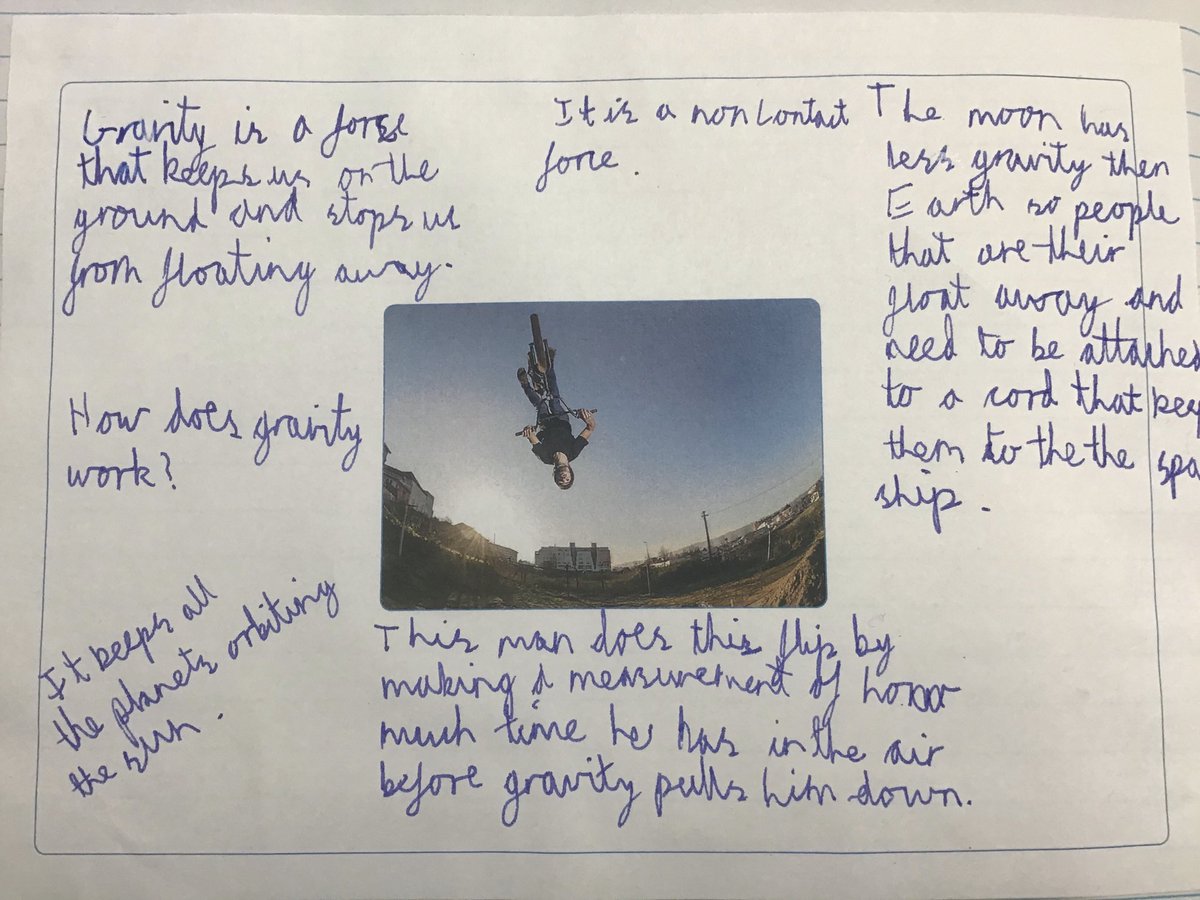 Gravity is a forse
that keeps us on the
ground and stops us
from floating away.
It is a non contact
force.
The moon has
less gravity then
Earth so people
that are their
float away and
need to be attached
to a cord that keep
them to the the spa
ship.
How does gravity
work?
It keeps all
the planets orbiting
the sun.
This man does this flip by
making a measurement of how
much time he has in the air
before gravity pulls him down.